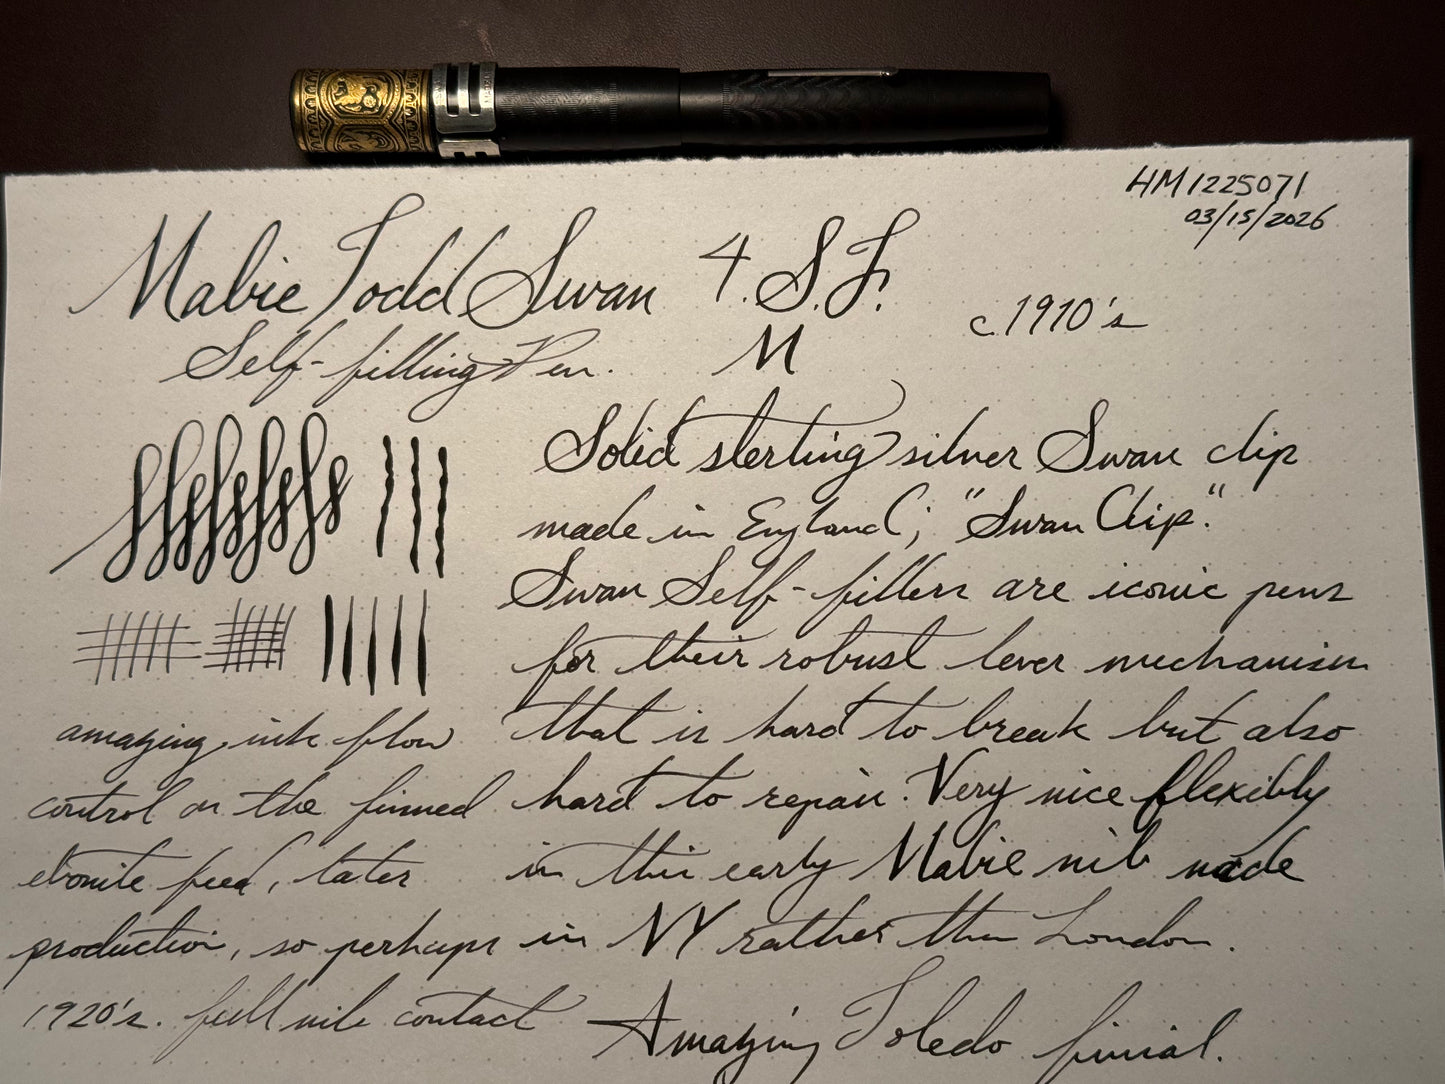 HM1225071
03/15/2026
Mabie Todd Swan 4 S.F.
c.1910's
Self-filling Pen. M
Solid sterling silver Swan clip
made in England; "Swan Clip."
Swan Self-fillers are iconic pens
for their robust lever mechanism
that is hard to break but also
hard to repair. Very nice flexibly
in this early Mabie nib made
in NY rather than London.
Amazing Toledo finial.
amazing ink flow
control on the finned
ebonite feed, later
production, so perhaps
1920's. full nib contact